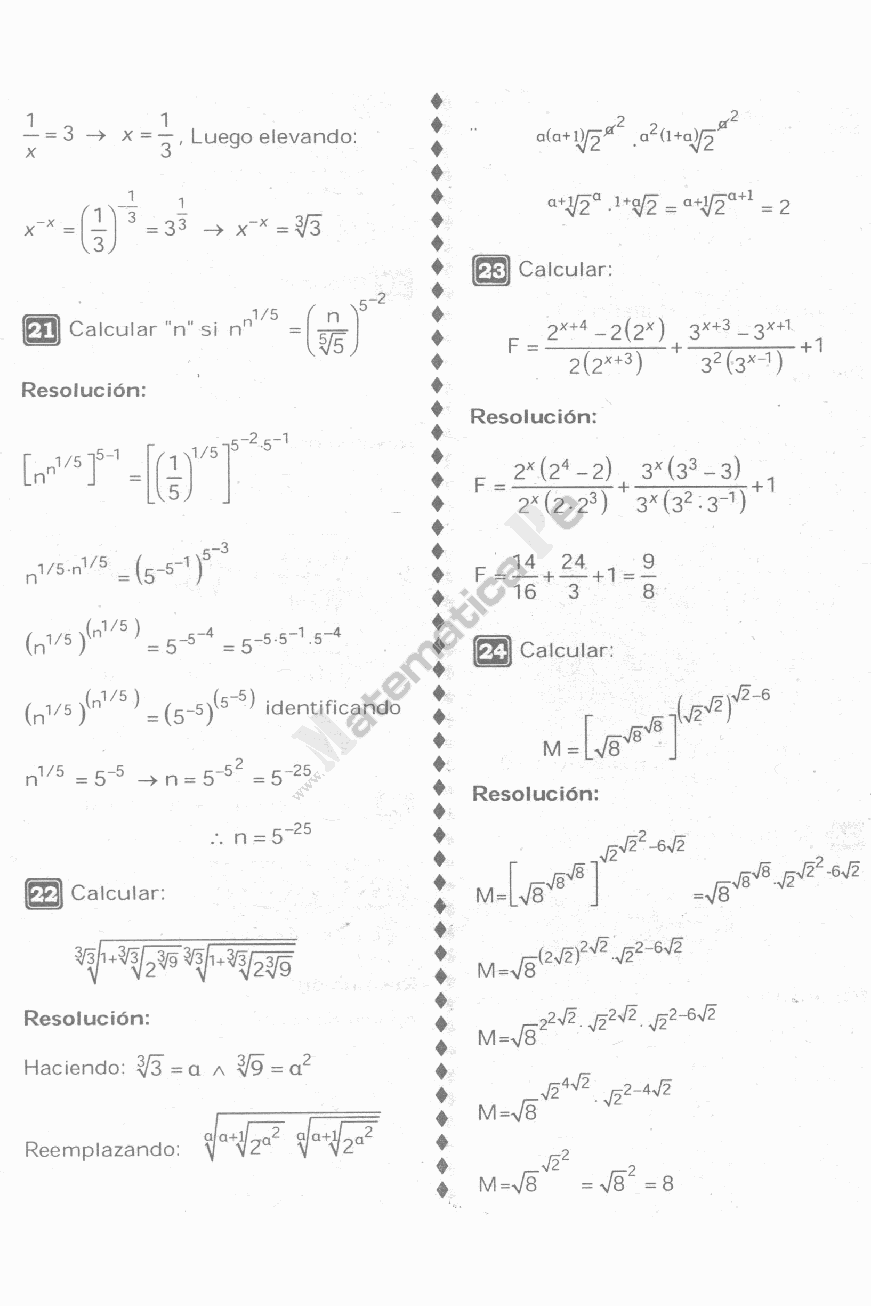 1/x = 3 → x = 1/3, Luego elevando:
x^{-x} = (1/3)^{-1/3} = 3^{1/3} → x^{-x} = ∛3
21 Calcular "n" si n^{n^{1/5}} = (n/⁵√5)^{5^{-2}}
Resolución:
[n^{n^{1/5}}]^{5^{-1}} = [(1/5)^{1/5}]^{5^{-2}·5^{-1}}
n^{1/5·n^{1/5}} = (5^{-5^{-1}})^{5^{-3}}
(n^{1/5})^{(n^{1/5})} = 5^{-5^{-4}} = 5^{-5·5^{-1}·5^{-4}}
(n^{1/5})^{(n^{1/5})} = (5^{-5})^{(5^{-5})} identificando
n^{1/5} = 5^{-5} → n = 5^{-5^2} = 5^{-25}
∴ n = 5^{-25}
22 Calcular:
\sqrt[∛3]{\sqrt[1+∛3]{2^{∛9}} \sqrt[∛3]{\sqrt[1+∛3]{2^{∛9}}}}
Resolución:
Haciendo: ∛3 = a ∧ ∛9 = a²
Reemplazando: \sqrt[a]{\sqrt[a+1]{2^{a^2}} \sqrt[a]{\sqrt[a+1]{2^{a^2}}}}
\sqrt[a(a+1)]{2^{a^2}} . \sqrt[a^2(1+a)]{2^{a^2}}
\sqrt[a+1]{2^a} . \sqrt[1+a]{2} = \sqrt[a+1]{2^{a+1}} = 2
23 Calcular:
F = (2^{x+4} – 2(2^x))/(2(2^{x+3})) + (3^{x+3} – 3^{x+1})/(3²(3^{x–1})) + 1
Resolución:
F = (2^x(2⁴ – 2))/(2^x(2·2³)) + (3^x(3³ – 3))/(3^x(3²·3^{–1})) + 1
F = 14/16 + 24/3 + 1 = 9/8
24 Calcular:
M = [√8^{√8^{√8}}]^{(√2^{√2})^{√2–6}}
Resolución:
M=[√8^{√8^{√8}}]^{√2^{√2^2–6√2}} =√8^{√8^{√8}·√2^{√2^2-6√2}}
M=√8^{(2√2)^{2√2}·√2^{2–6√2}}
M=√8^{2^{2√2}·√2^{2√2}·√2^{2–6√2}}
M=√8^{√2^{4√2}·√2^{2–4√2}}
M=√8^{√2^2} = √8^2 = 8
www.Matematica Pe